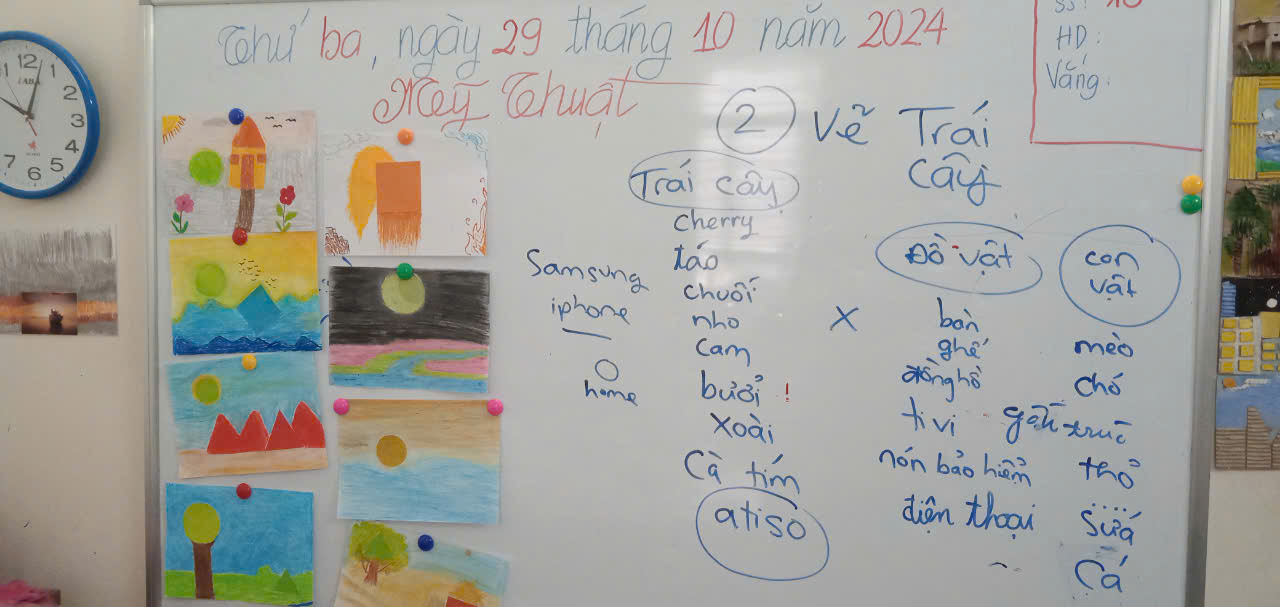 Thứ ba, ngày 29 tháng 10 năm 2024
Mỹ Thuật
SS: 10
HD:
Vắng:
2 Vẽ Trái
Cây
Trái cây
cherry
táo
chuối
nho
cam
bưởi !
xoài
Cà tím
atisô
Samsung
iphone
home
X
Đồ vật
bàn
ghế
đồng hồ
ti vi
nón bảo hiểm
điện thoại
con
vật
mèo
chó
gấu trúc
thỏ
sứa
cá
11 12 1
2
3
4
5
6
7